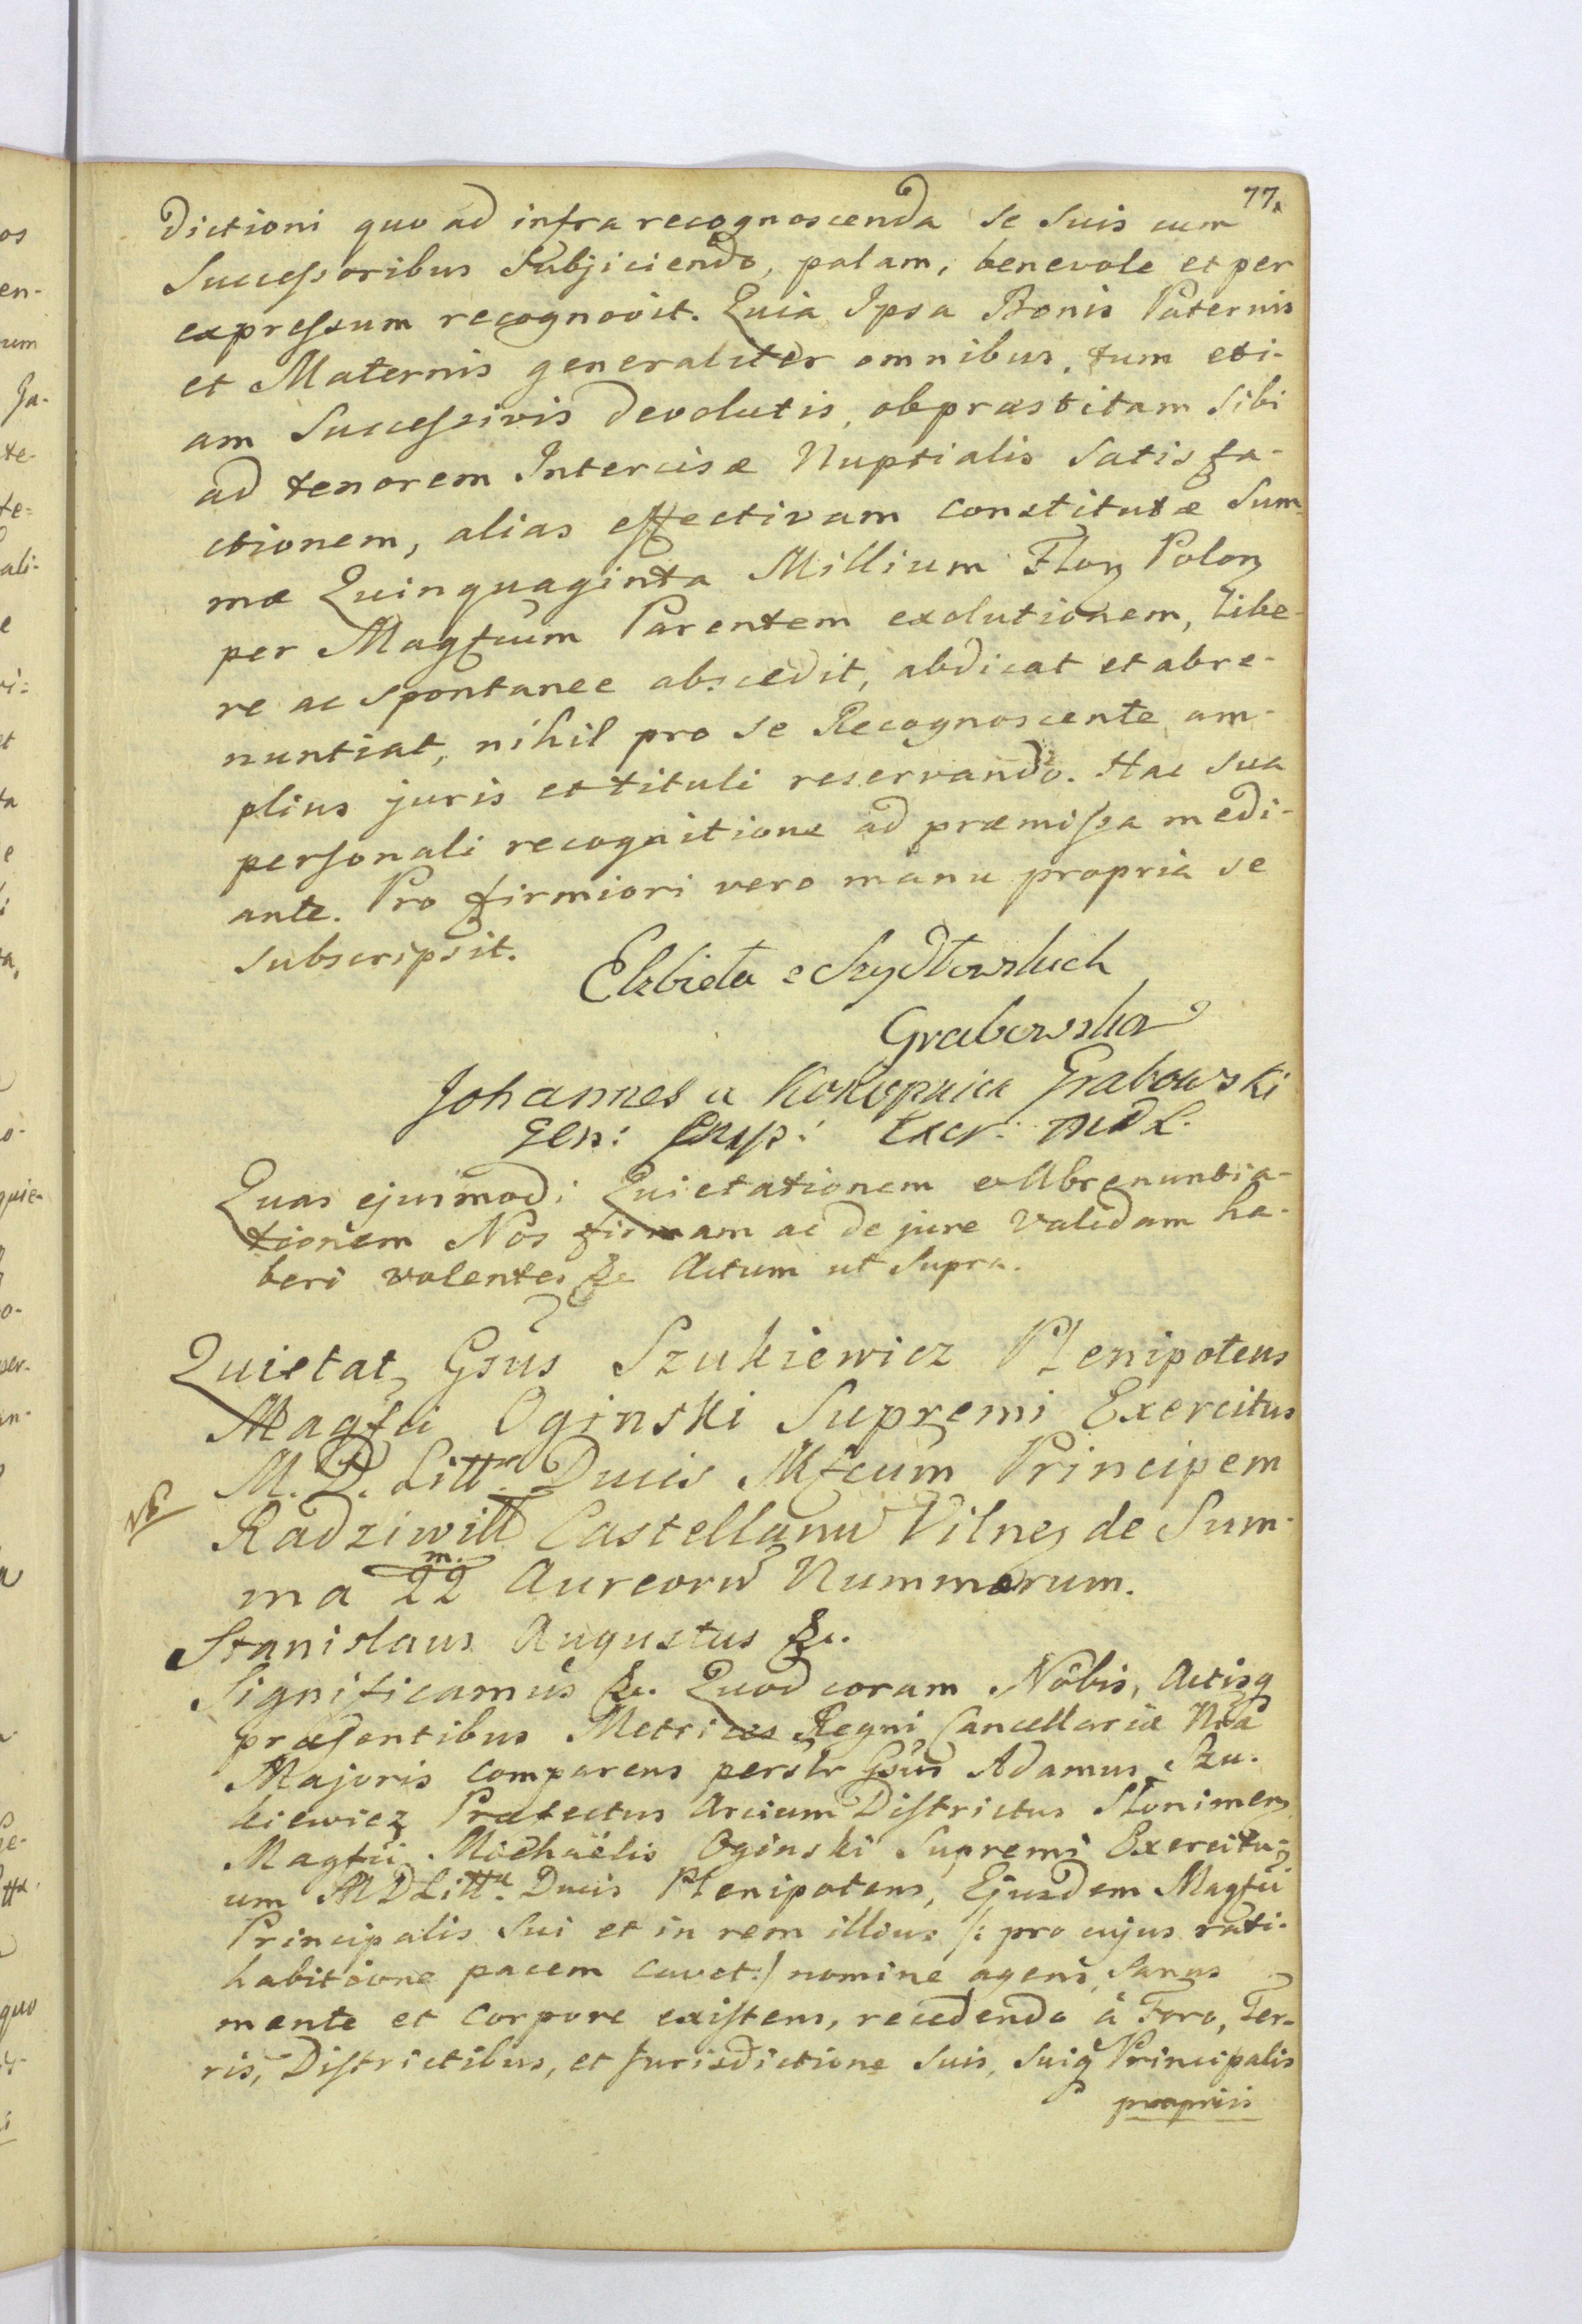 77.
dictioni quo ad infra recognoscenda se suis cum
Successoribus Subjiciendo, palam, benevole et per
expressum recognovit. Quia Ipsa Bonis Paternis
et Maternis generaliter omnibus, tum eti-
am Successivis devolutis, ob præstitam Sibi
ad tenorem Intercisæ Nuptialis Satisfa-
ctionem, alias effectivam constitutæ Sum-
mæ Quinquaginta Millium Flor Polon
per Magfcum Parentem exolutionem, libe-
re ac spontanee abscedit, abdicat et abre-
nuntiat, nihil pro se Recognoscente am-
plius juris et tituli reservando. Hac sua
personali recognitione ad præmissa medi-
ante. Pro firmiori vero manu propria se
subscripsit.
Elzbieta z Szydłowskich
Grabowska
Johannes a Konopnica Grabowski
Gen: Exer: MDL.
Quas ejusmodi Quietationem et Abrenuntia-
tionem Nos firmam ac de jure validam ha-
beri volentes &c Actum ut Supra.
Quietat Gsus Szukiewicz Plenipotens
Magfci Oginski Supremi Exercitus
M. D. Litt. Ducis Mfcum Principem
NB
Radziwiłł Castellanu Vilnen de Sum-
ma 22 m. Aureoru Nummorum.
Stanislaus Augustus &c.
Significamus &c. Quod coram Nobis, Actisq
præsentibus Metrices Regni Cancellariæ Nra
Majoris comparens persłr Gsus Adamus Szu-
kiewicz Præfectus Arcium Districtus Słonimen
Magfci Michaëlis Oginski Supremi Exercitu-
um MDLitt. Ducis Plenipotens, Ejusdem Magfci
Principalis Sui et in rem illius /: pro cujus rati-
habitione pacem cavet:/ nomine agens, Sanus
mente et Corpore existens, recedendo à Foro, Ter-
ris, Districtibus, et Jurisdictione Suis, Suiq Principalis
propriis